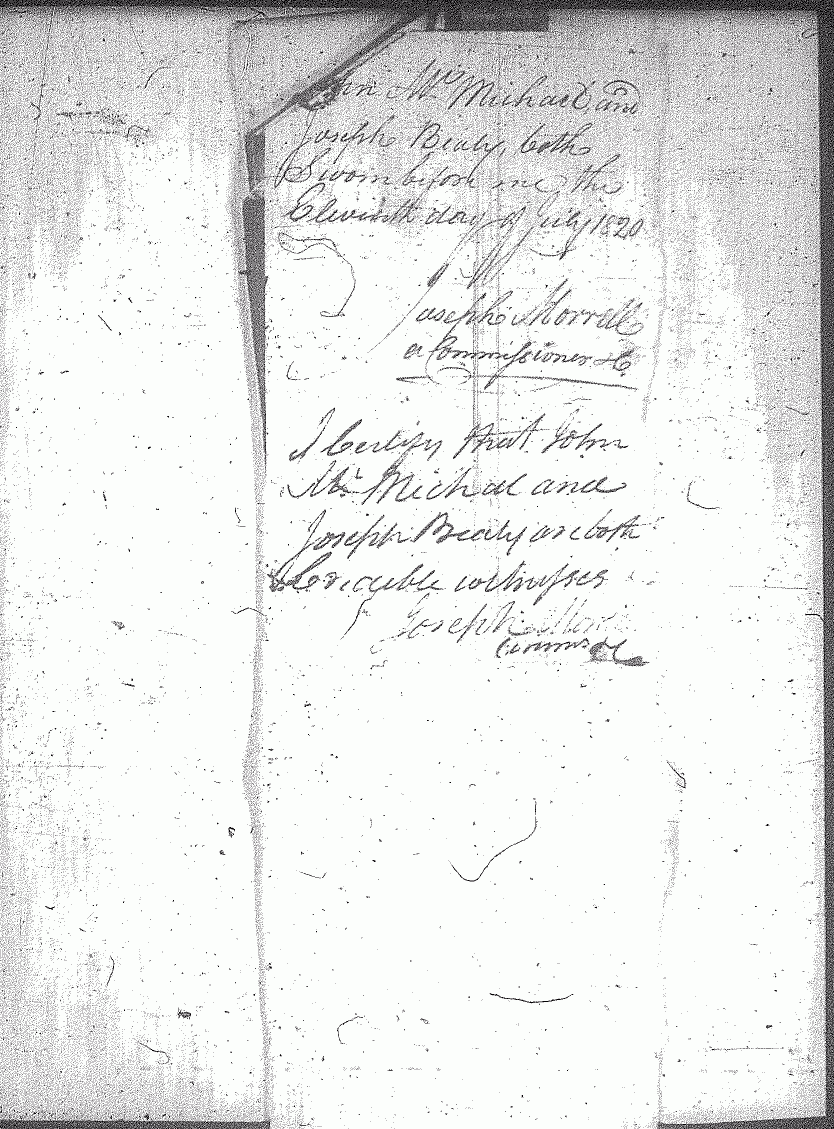 John Mc Michael, and
Joseph Bealy, both
Sworn before me this
Eleventh day of July 1820
Joseph Morrell
a Commissioner &c
I Certify that John
Mc Michal and
Joseph Bealy are both
Creadeble witnesses
Joseph
Commis &c